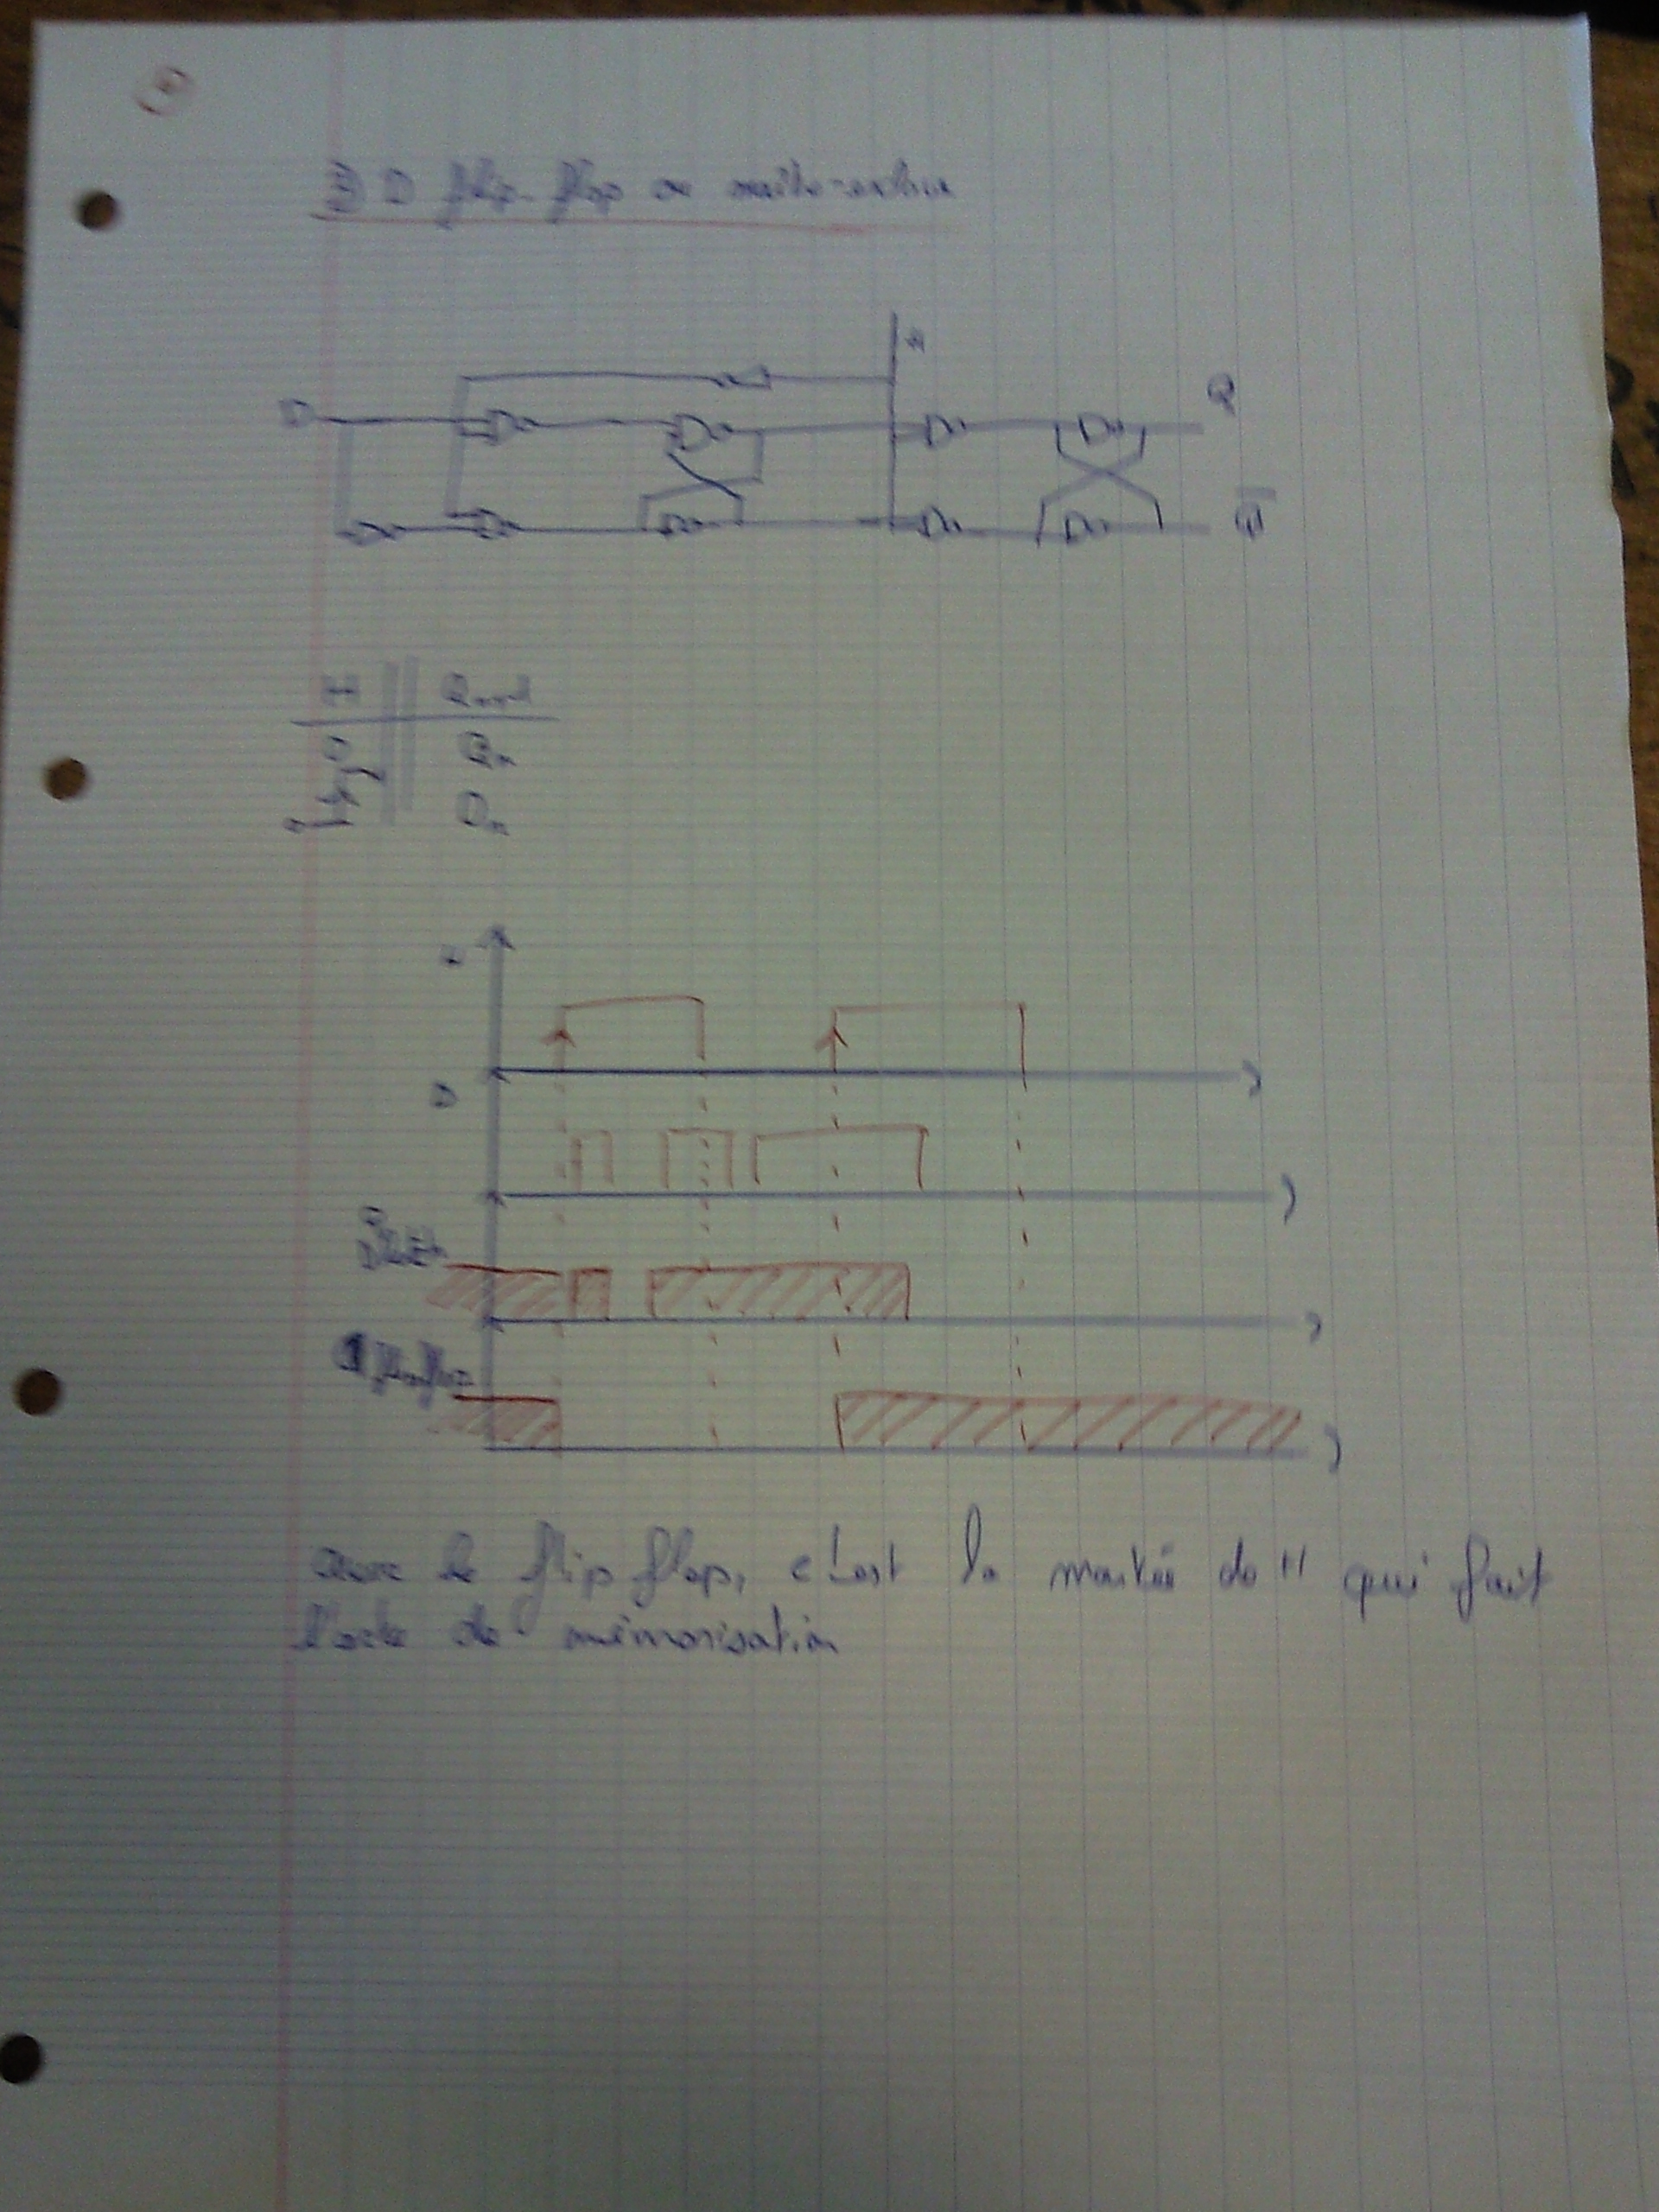 3) D flip-flop ou maître-esclave
H
D
Q
Q̅
H Qn+1
0 Qn
Dn
H
D
Q
D latch
Q flip flop
avec le flip flop, c'est la montée de H qui fait
l'acte de mémorisation